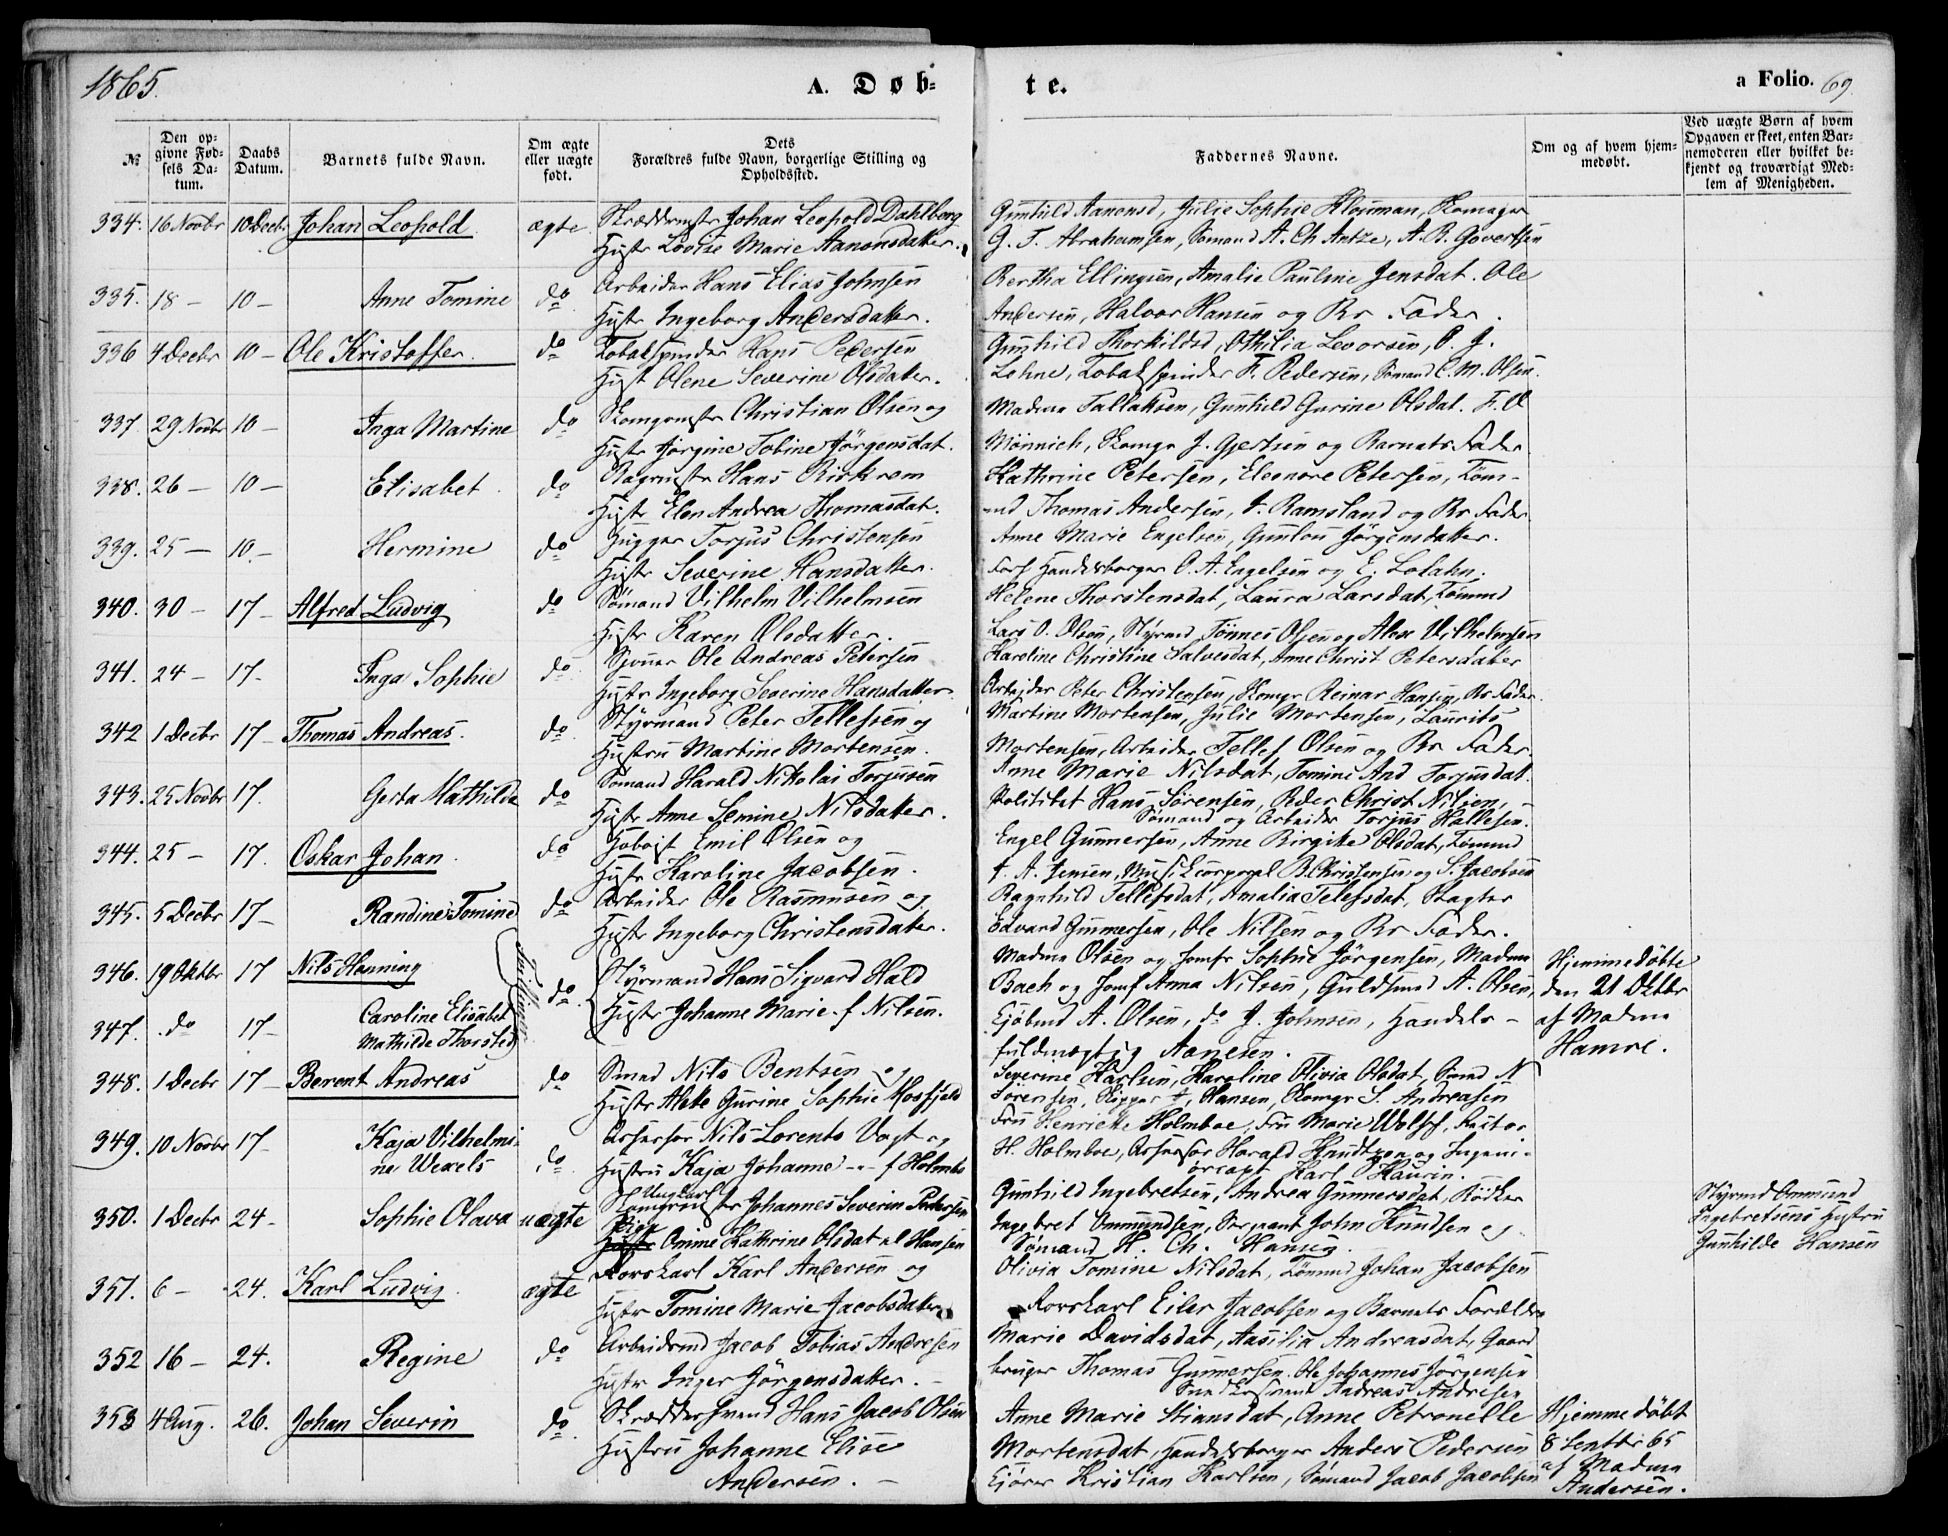 1865.
A. Døb-
te.
a Folio. 69.
№
Den op-
givne Fød-
sels Da-
tum.
Daabs
Datum.
Barnets fulde Navn.
Om ægte
eller uægte
født.
Dets
Forældres fulde Navn, borgerlige Stilling og
Opholdssted.
Faddernes Navne.
Om og af hvem hjem-
medøbt.
Ved uægte Børn af hvem
Opgaven er skeet, enten Bar-
nemoderen eller hvilket be-
kjendt og troværdigt Med-
lem af Menigheden.
334. 16 Novbr 10 Decbr Johan Leopold ægte Skræddermstr Johan Leopold Dahlberg
Hustr Lovise Marie Aanonsdatter.
Gunhild Aanonsd, Julie Sophie Klouman, Skomager
G. T. Abrahamsen, Sømand A. Ch Antze, A. B. Govertsen
335. 18 - 10 - Anne Tomine do Arbeider Hans Elias Johnsen
Hustr Ingeborg Andersdatter.
Bertha Ellingsen, Amalie Pauline Jensdat. Ole
Andersen, Halvor Hansen og Br Fader.
336 4 Decbr 10 - Ole Kristoffer. do Tobakspinder Hans Pedersen
Hust Olene Severine Olsdatter.
Gunhild Thorkildsd, Othilia Levorsen, O. J.
Lehne, Tobakspinder F. Pedersen, Sømand C. M. Olsen.
337 29 Novbr 10 - Inga Martine do Skomgrmstr Christian Olsen og
Hustr Jørgine Tobine Jørgensdat.
Madme Tallaksen, Gunhild Gurine Olsdat. F. O
Mönnich, Skomgr J. Gjertsen og Barnets Fader
338. 26 - 10 - Elisabet do Bagermstr Hans Birkrem
Hustr Elen Andrea Thomasdat.
Kathrine Petersen, Eleonore Petersen, Töm-
md Thomas Andersen, J. Ramsland og Br Fader
339. 25 - 10. - Hermine do Hugger Torjus Christensen
Hustr Severine Hansdatter.
Anne Marie Engelsen, Gunlou Jörgensdatter.
Handelsborger O. A. Engelsen og E.
340. 30 - 17 - Alfred Ludvig do Sömand Vilhelm Vilhelmsen
Hustr Karen Olsdatter.
Helene Thorstensdat, Laura Larsdat, Tömmd
Lars O. Olsen, Styrmd Tönnes Olsen og Alexe Vilhelmsen
341. 24 - 17 - Inga Sophie do Sjouer Ole Andreas Petersen
Hustr Ingeborg Severine Hansdatter
Karoline Christine Salvesdat, Anne Christ Petersdatter
Arbeider Peter Christensen, Skomgr Reinar Hansen, Br Fader.
342 1 Decbr 17 - Thomas Andreas. do Styrmand Peter Tellefsen og
Hustru Martine Mortensen.
Martine Mortensen, Julie Mortensen, Laurits
Mortensen, Arbeider Tellef Olsen og Br Fader.
343. 25 Novbr 17. Gerda Mathilde do Sømand Harald Nikolai Torjusen
Hustr Anne Semine Nilsdatter.
Anne Marie Nilsdat, Tomine And Torjusdat.
Politibet Hans Sörensen, Peder Christ Nilsen,
Sømand og Arbeider Torjus Hallesen.
344. 25 - 17. Oskar Johan. do Hoboist Emil Olsen og
Hustr Karoline Jacobsen.
Engel Gunnersen, Anne Birgitte Olsdat, Tömmd
A. Jensen, Musikcorporal B. Christensen og S. Jacobsen
345. 5 Decbr 17 - Randine Tomine do Arbeider Ole Rasmussen og
Hustr Ingeborg Christensdatter.
Ragnhild Tellefsdat, Amalia Tellefsdat, Slagter
Edvard Gunnersen, Ole Nilsen og Br Fader.
346. 19 Oktbr 17 Nils Henning
Tvillinger
do. Styrmand Hans Sigvard Hald
Hustr Johanne Marie f Nilsen.
Madme Olsen og Jomfr Sophie Jörgensen, Madme
Bach og Jomf Anna Nilsen, Guldsmed A. Olsen,
Hjemmedöbte
den 21 Oktbr
af Madme
Hamre.
347. do 17 - Caroline Elisabet
Mathilde Thorsted
Kjöbmd A. Olsen, do J. Johnsen, Handels -
fuldmægtig Aanesen.
348. 1 Decbr 17 - Berent Andreas do Smed Nils Bentsen og
Hustr Alette Gurine Sophie Mosfjeld
Severine Karlsen, Karoline Olivia Olsdat, Smed N
Sörensen, Hansen, Skomgr S. Andreasen
349. 10 Novbr 17 - Kaja Vilhelmi-
ne Wexels do Assessor Nils Lorents Vogt og
Hustru Kaja Johanne - - f Holmbo
Fru Henriette Holmboe, Fru Marie Wolff, Rector
H. Holmboe, Assessor Harald Knudtzon og Ingeni-
örcapt Karl Haurin.
350. 1 Decbr 24 - Sophie Olava uægte Ungkarl
Skomgrmstr Johannes Severin Pedersen
Pige
Hustr Omine Kathrine Olsdat al Hansen
Gunhild Ingebretsen, Andrea Gunnersdat, Bödker
Ingebret Ommundsen, Sergeant John Knudsen og
Sømand H. Ch. Hansen.
Styrmd Ommund
Ingebretsens Hustru
Gunhilde Hansen
351. 6 - 24. Karl Ludvig. ægte Rorskarl Karl Andersen og
Hustr Tomine Marie Jacobsdatter
Olivia Tomine Nilsdat, Tömmd Johan Jacobsen
Rorskarl Eiler Jacobsen og Barnets Forældre
352 16 - 24. Regine do Arbeidsmd Jacob Tobias Andresen
Hustr Inger Jörgensdatter. -
Marie Davidsdat, Aasilia Andreasdat, Gaard
bruger Thomas Gunnersen, Ole Johannes Jörgensen
Andreas Andresen
353 4 Aug. 26. Johan Severin do Skræddersvend Hans Jacob Olsen
Hustru Johanne Elise
Andersen. -
Anne Marie Stiansdat, Anne Petronelle
Mortensdat, Handelsborger Anders Pedersen
Kjörer Kristian Karlsen, Sömand Jacob Jacobsen
Hjemmedöbt
8 Septbr 65
af Madme
Andersen.